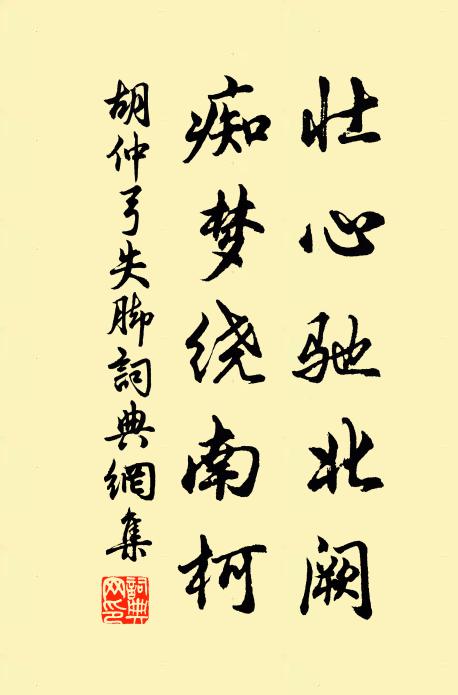 壮心驰北阙
痴梦绕南柯
胡仲弓失脚詞典網集
詞典网印